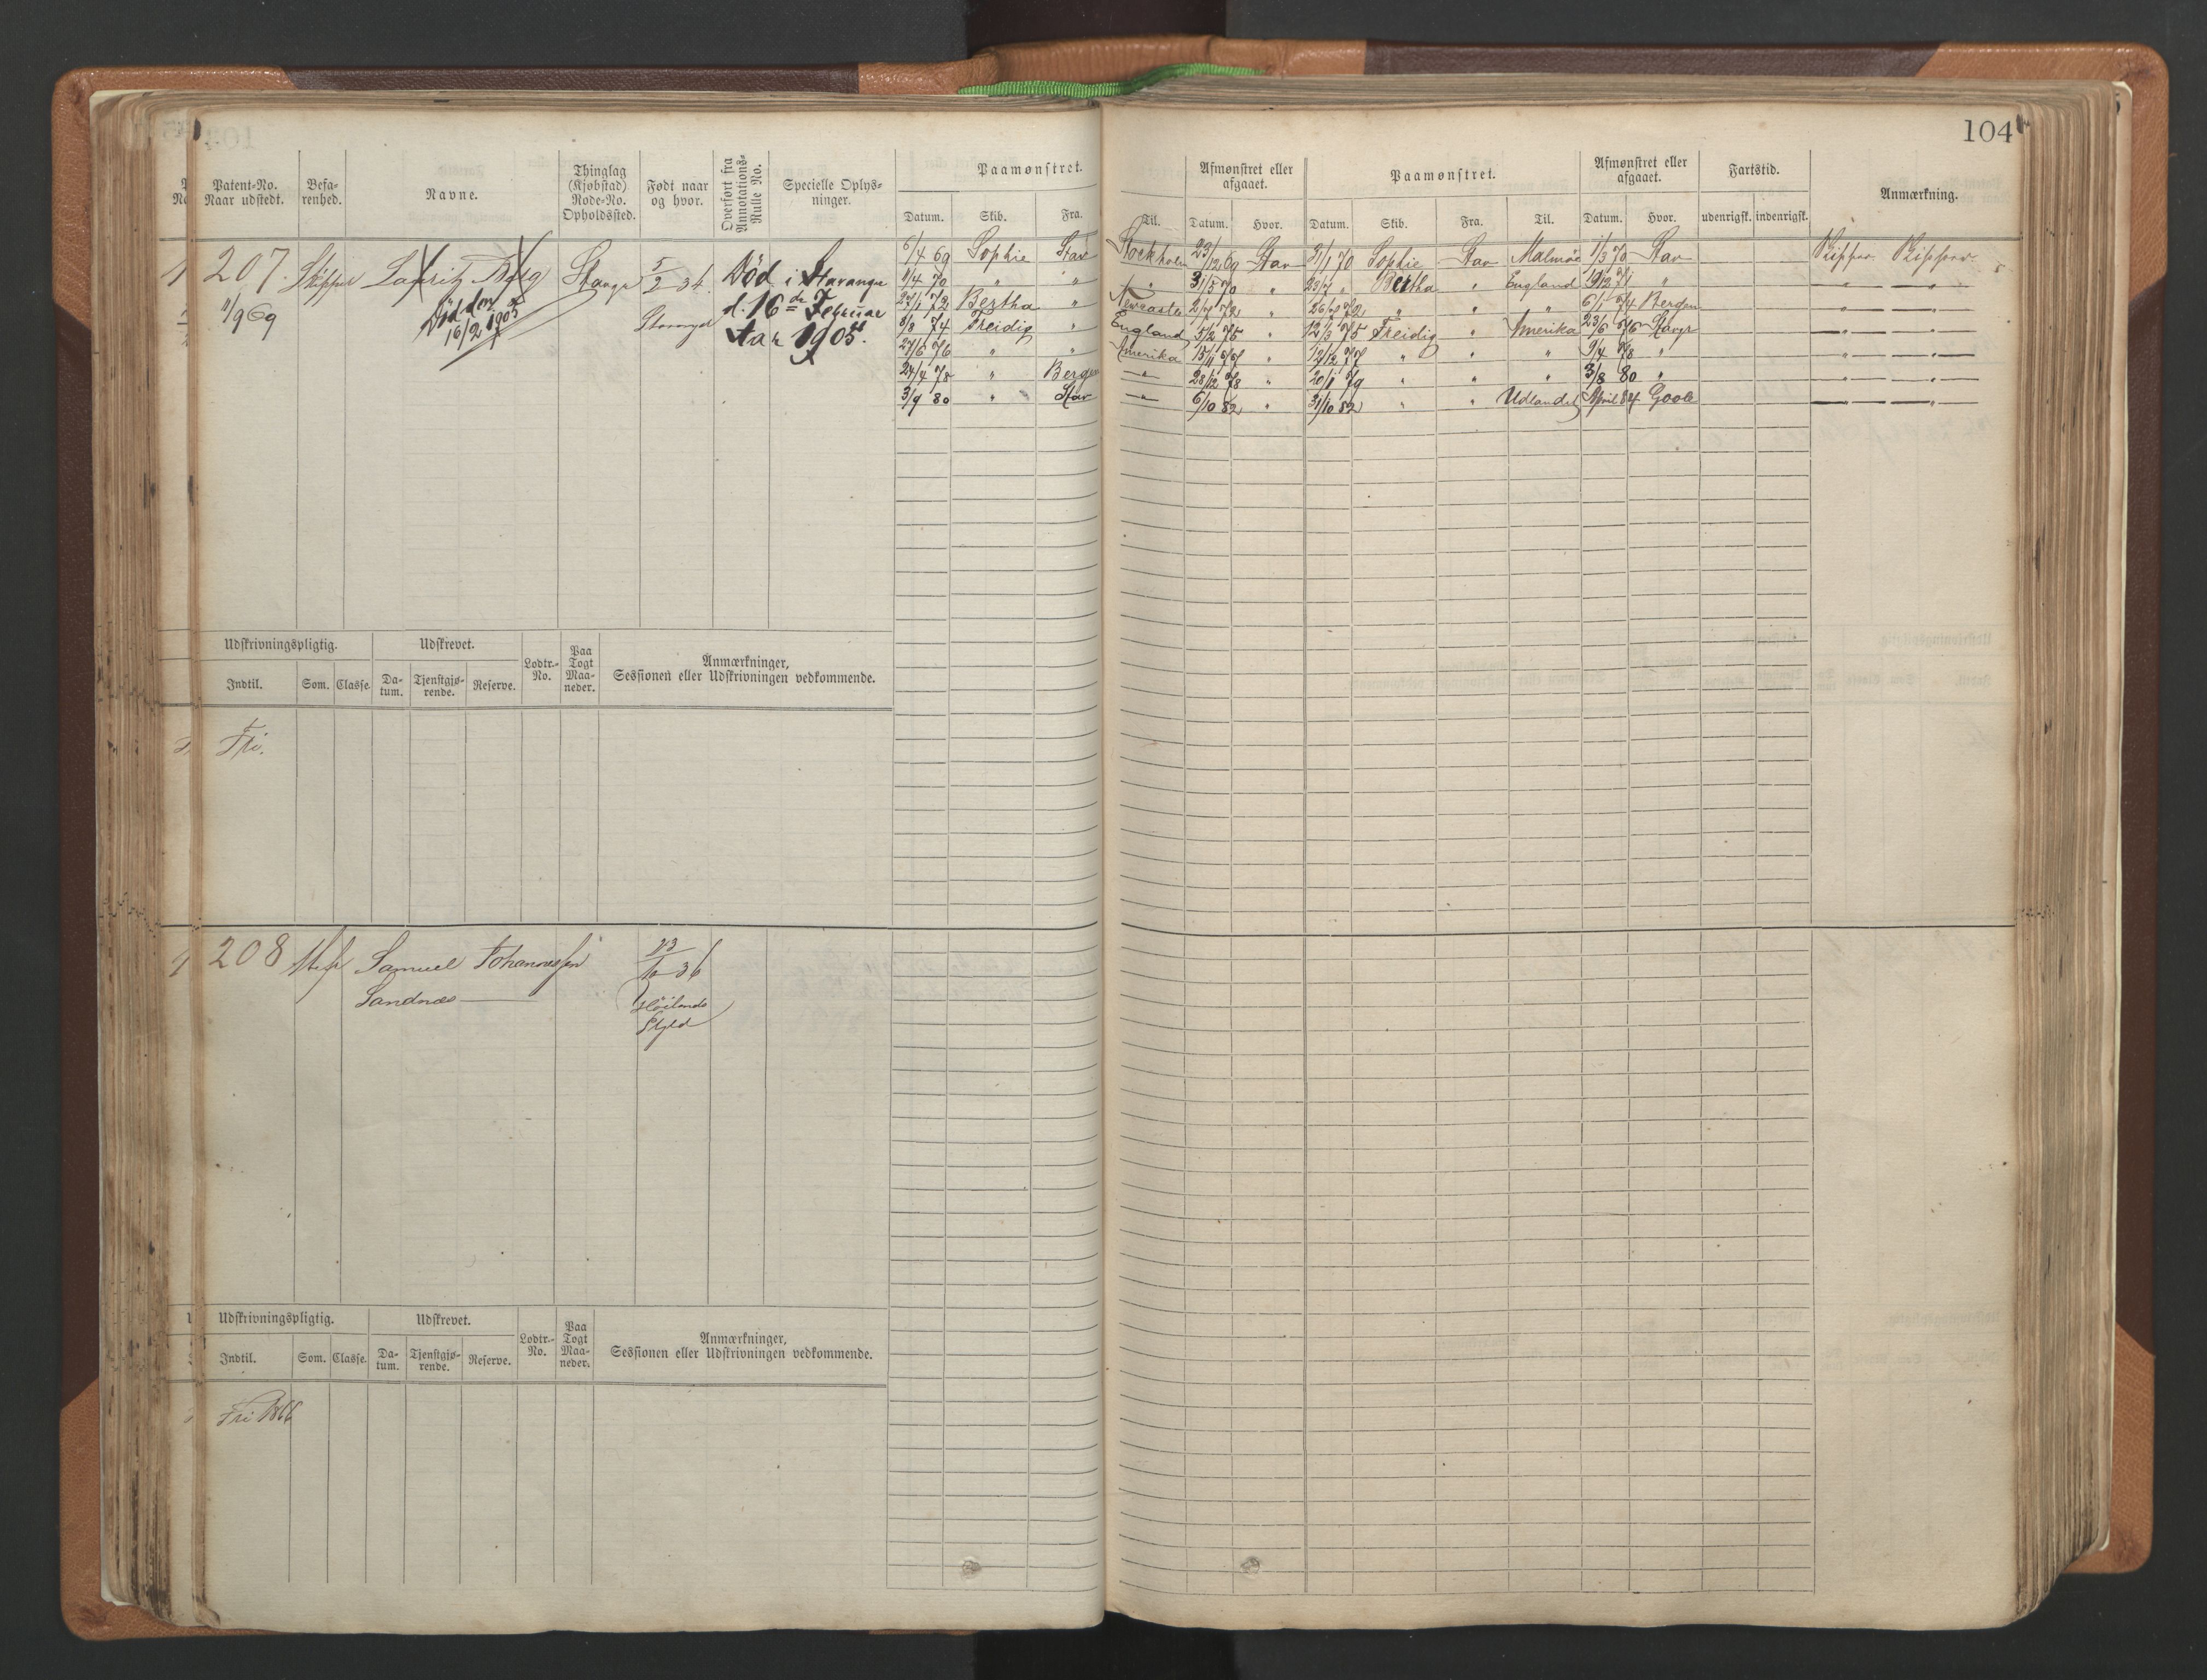 104
Patent-No. Naar udstedt.
Befarenhed.
Navne.
Thinglag (Kjøbstad) Rode-No. Opholdssted.
Født naar og hvor.
Overført fra Annotations-Rulle No.
Specielle Oplysninger.
Paamønstret.
Datum. Skib. Fra. Til.
Afmønstret eller afgaaet.
Datum. Hvor.
Paamønstret.
Datum. Skib. Fra. Til.
Afmønstret eller afgaaet.
Datum. Hvor.
Fartstid.
udenrigsk. indenrigsk.
Anmærkning.
207. Skipper Lauritz Stavgr 5/2 34. Død i Stavanger
11/9 69 Død den 16/2 1905 d. 16de Februar
Aar 1905.
6/4 69 Sophie Stav Stockholm 23/12 69 Stav 31/1 70 Sophie Stav Malmöe 1/3 70 Stav
11/4 70 " " " 31/5 70 " Bertha " England 19/12 71 "
Bertha " Newcastle " " " " 6/1 74 Bergen
8/8 74 Freidig " England 5/2 75 " 12/3 75 Freidig " Amerika 23/6 76 Stavgr
27/6 76 " " Amerika " 12/12 77 " " " 9/4 78 "
24/4 78 " Bergen — " — 28/12 78 " 20/1 79 " " " 3/8 80 "
3/9 80 " Stav — " — 6/10 82 " 31/10 82 " " Udlandet April 84 Goole
Udskrivningspligtig. Udskrevet. Lodtr.-No. Paa Togt Maaneder. Anmærkninger,
Indtil. Som. Classe. Datum. Tjenstgjørende. Reserve. Sessionen eller Udskrivningen vedkommende.
Fri.
208 Samuel Johannesen
Sandnæs
36
Høilands
Udskrivningspligtig. Udskrevet. Lodtr.-No. Paa Togt Maaneder. Anmærkninger,
Indtil. Som. Classe. Datum. Tjenstgjørende. Reserve. Sessionen eller Udskrivningen vedkommende.
Fri 1866